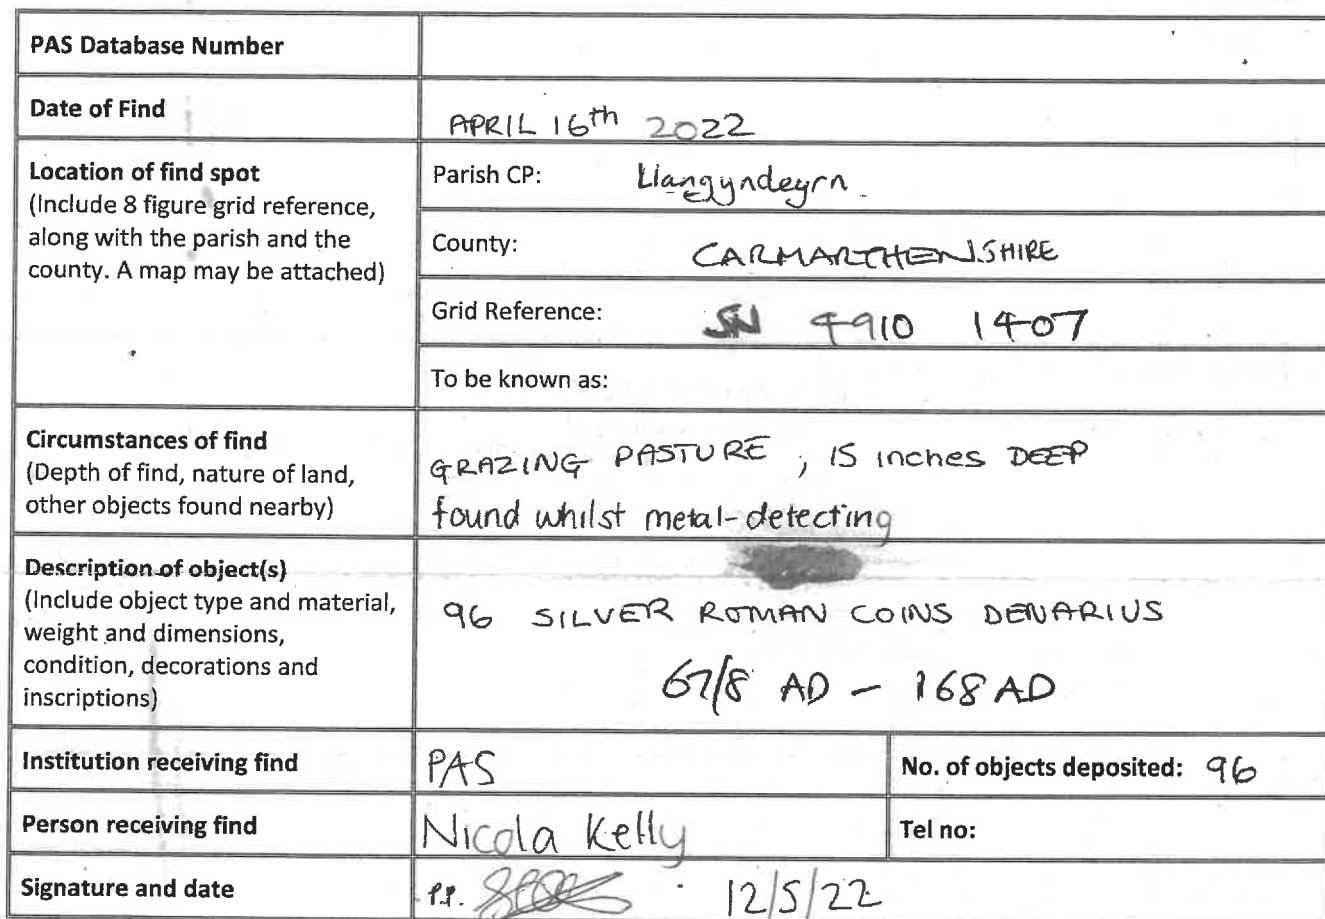 PAS Database Number
Date of Find
APRIL 16th 2022
Location of find spot
(Include 8 figure grid reference,
along with the parish and the
county. A map may be attached)
Parish CP: Llangyndeyrn
County: CARMARTHENSHIRE
Grid Reference: SN 4910 1407
To be known as:
Circumstances of find
(Depth of find, nature of land,
other objects found nearby)
GRAZING PASTURE, 15 inches DEEP
found whilst metal-detecting
Description of object(s)
(Include object type and material,
weight and dimensions,
condition, decorations and
inscriptions)
96 SILVER ROMAN COINS DENARIUS
67/8 AD – 168 AD
Institution receiving find
PAS
No. of objects deposited: 96
Person receiving find
Nicola Kelly
Tel no:
Signature and date
P.P. 12/5/22